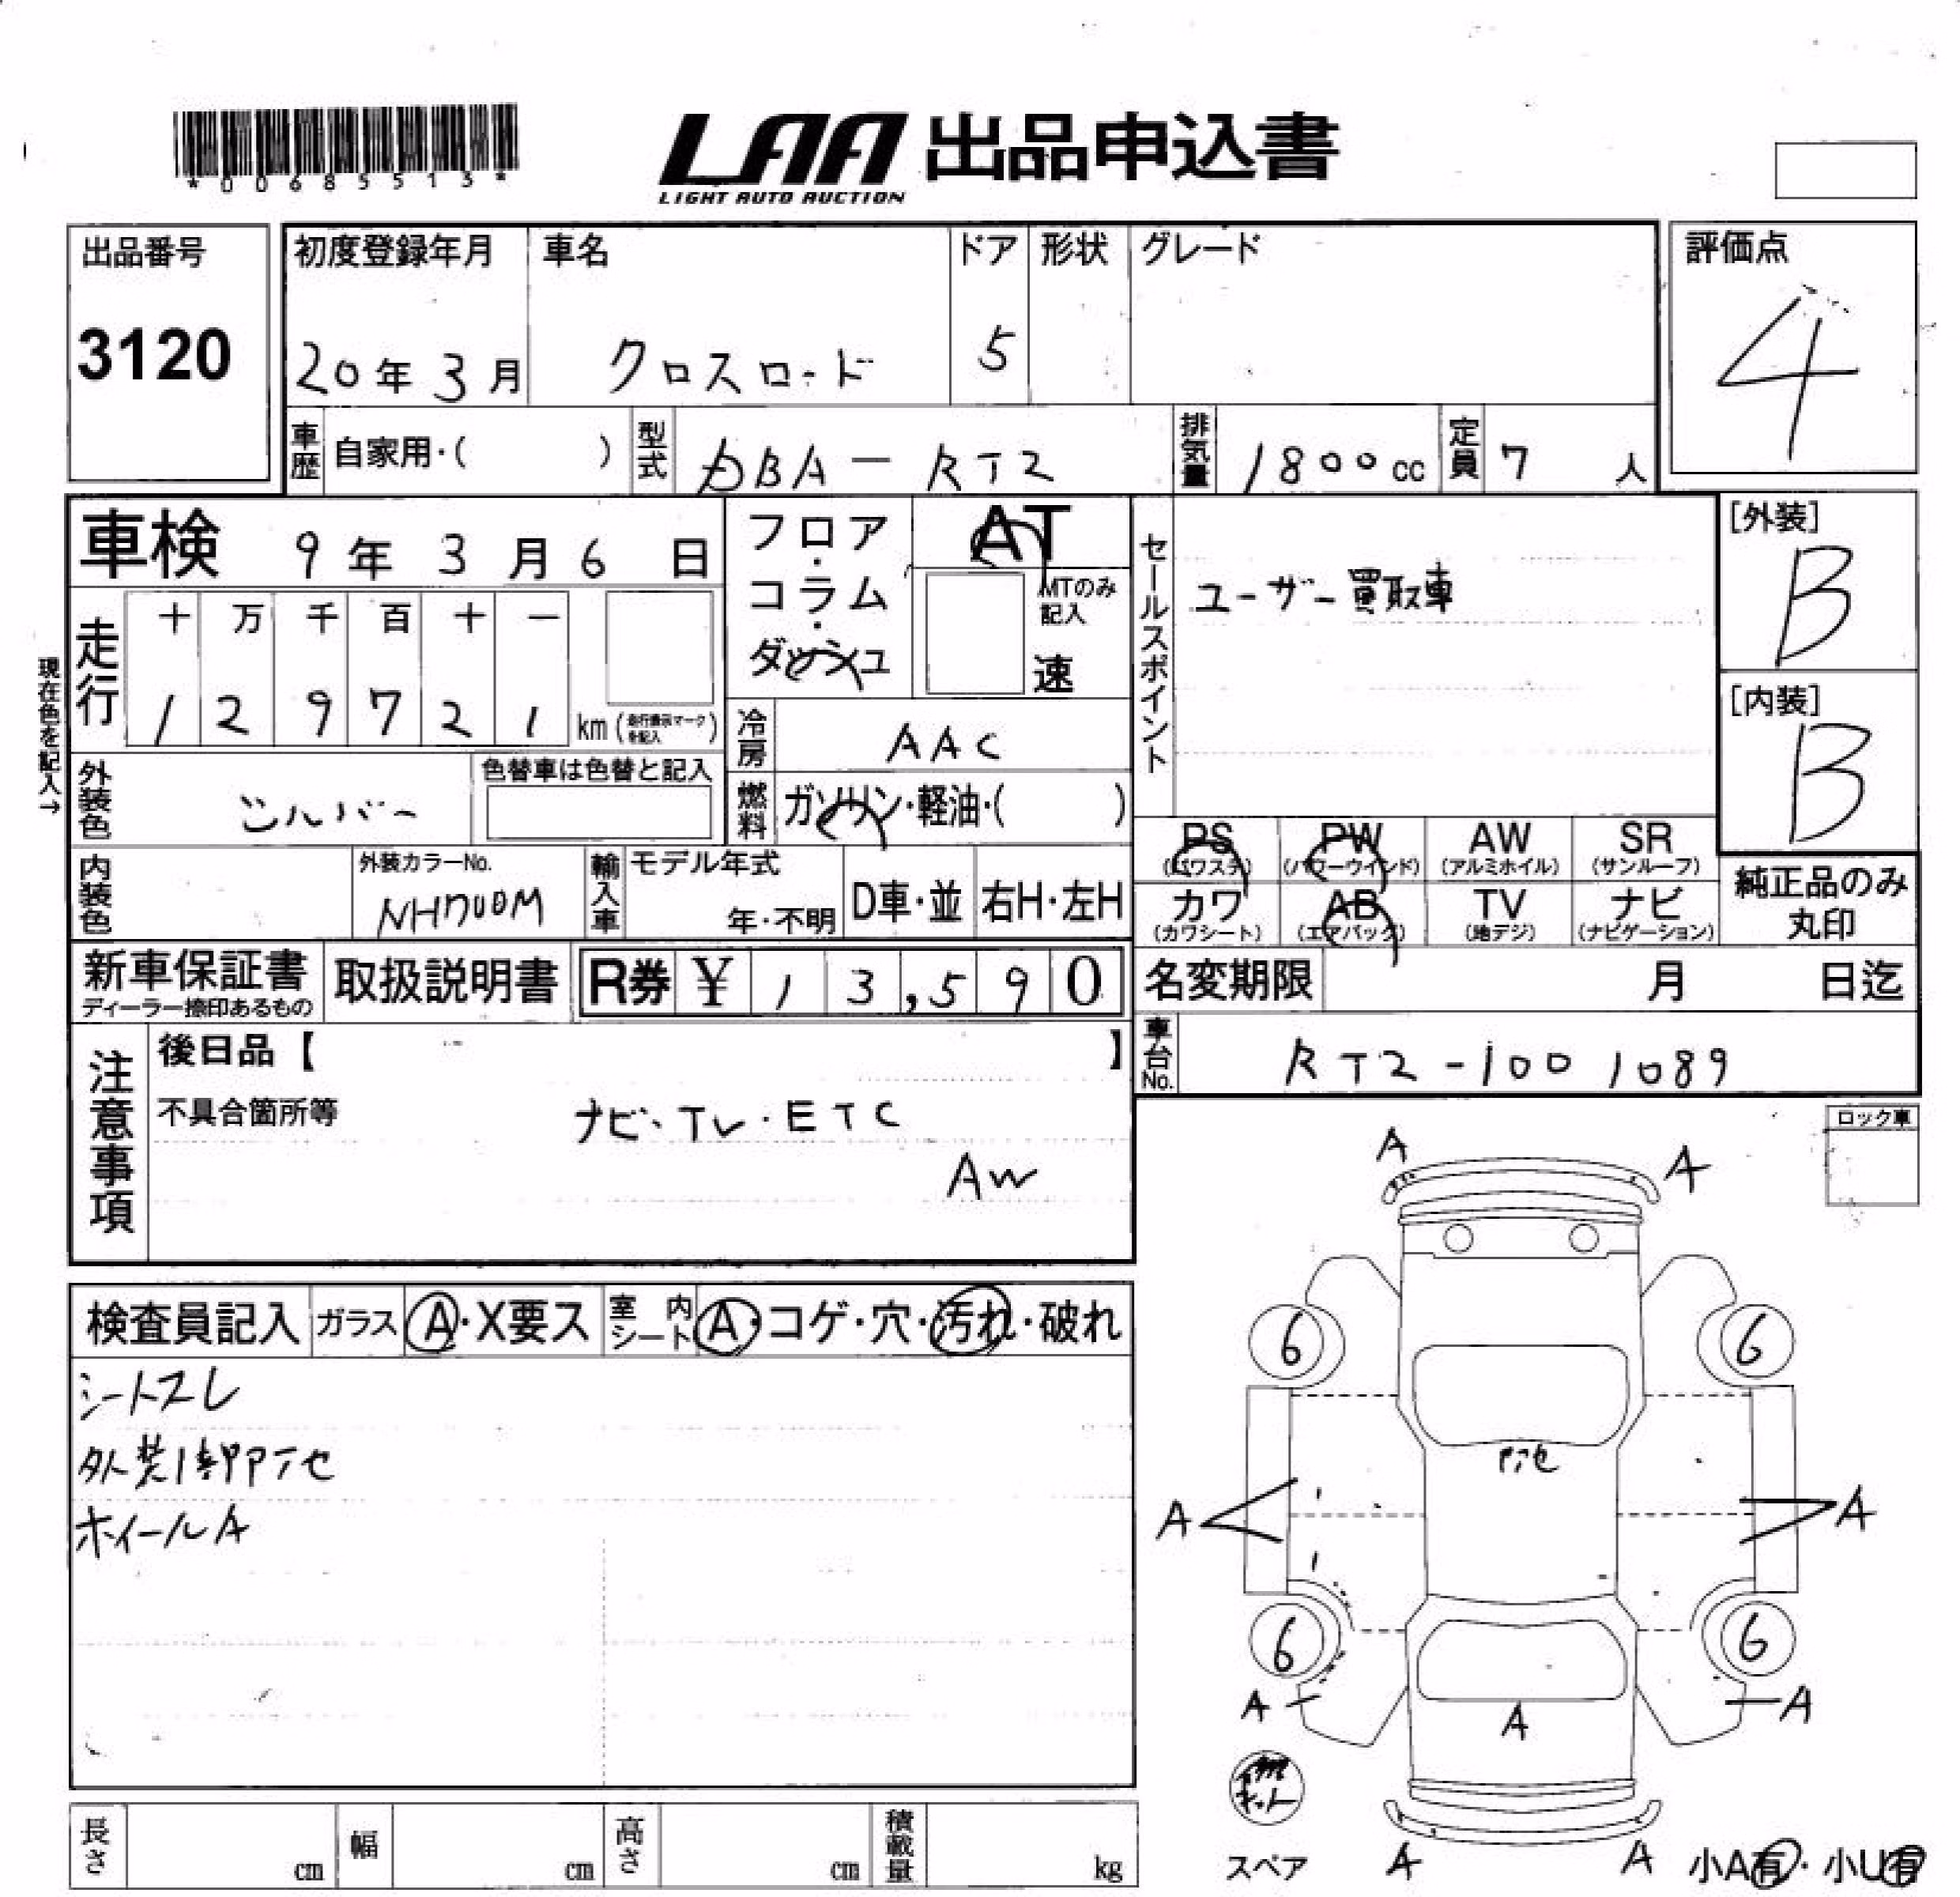 *00685513*
LAA 出品申込書
LIGHT AUTO AUCTION
出品番号
3120
初度登録年月
20年 3月
車名
クロスロード
ドア
5
形状
グレード
評価点
4
車歴
自家用・( )
型式
DBA-RT2
排気量
1800cc
定員
7 人
車検 9年 3月 6日
フロア・コラム・ダッシュ
AT
MTのみ記入
速
セールスポイント
ユーザー買取車
[外装]
B
[内装]
B
現在色を記入→
走行
十 万 千 百 十 一
1 2 9 7 2 1 km (走行表示マークを記入)
冷房
AAC
外装色
シルバー
色替車は色替と記入
燃料
ガソリン・軽油・( )
PS (パワステ)
PW (パワーウインド)
AW (アルミホイル)
SR (サンルーフ)
カワ (カワシート)
AB (エアバック)
TV (地デジ)
ナビ (ナビゲーション)
純正品のみ丸印
内装色
外装カラーNo.
NH700M
輸入車
モデル年式
年・不明
D車・並
右H・左H
新車保証書
ディーラー捺印あるもの
取扱説明書
R券 ¥ 13,590
名変期限 月 日迄
車台No.
RT2-1001089
注意事項
後日品【 】
不具合箇所等
ナビ・TV・ETC
AW
ロック車
検査員記入
ガラス
A・X要ス
室内シート
A・コゲ・穴・汚れ・破れ
シートスレ
外装1部アセ
ホイールA
A
A
6
6
アセ
A
A
6
6
A
A
A
スペア
A
A
小A有・小U有
長さ cm
幅 cm
高さ cm
積載量 kg